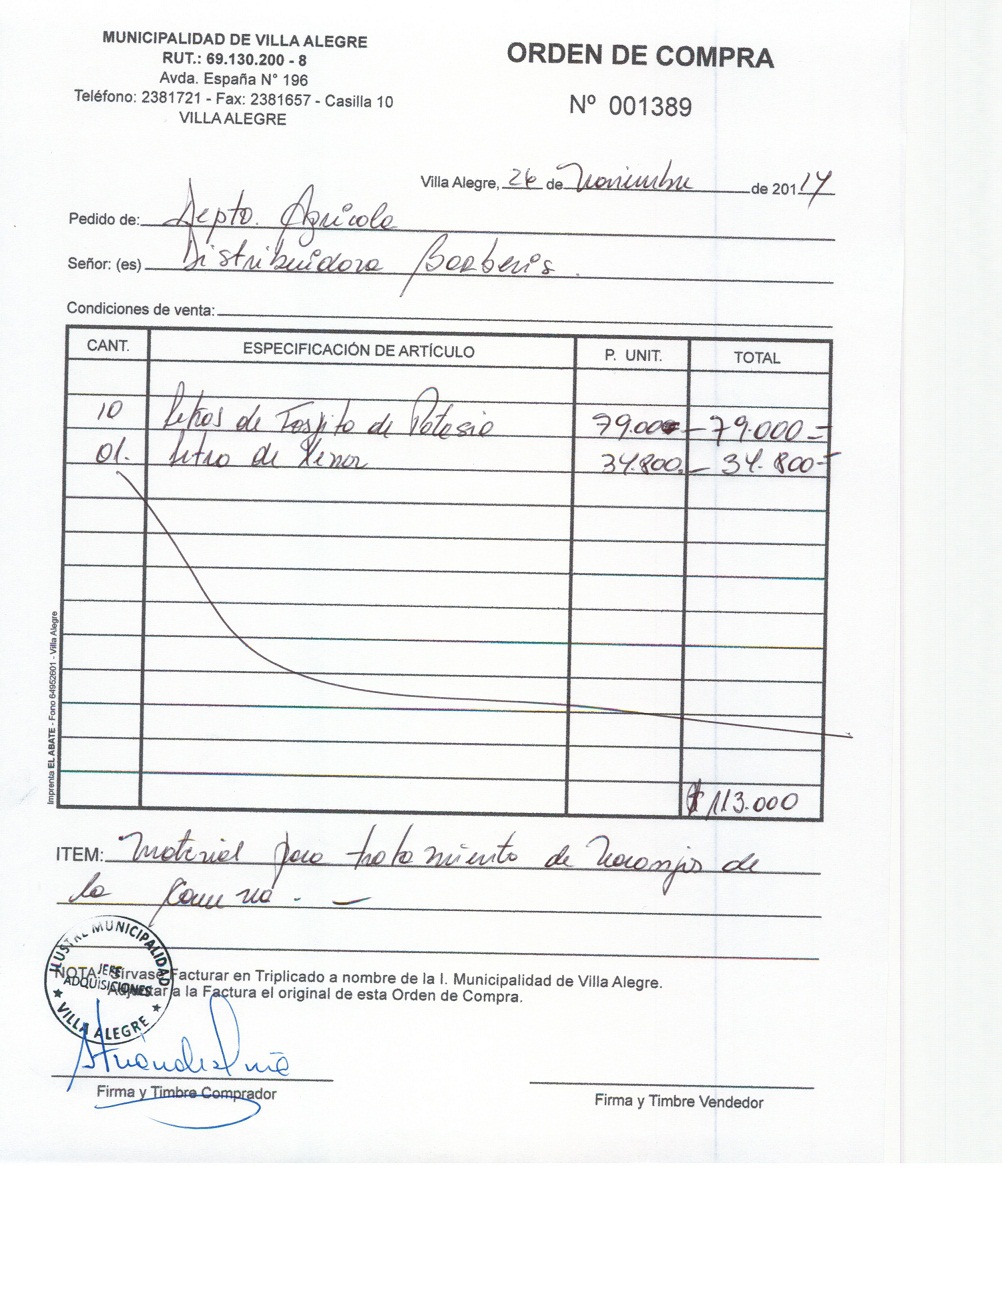 MUNICIPALIDAD DE VILLA ALEGRE
RUT.: 69.130.200 - 8
Avda. España N° 196
Teléfono: 2381721 - Fax: 2381657 - Casilla 10
VILLA ALEGRE
ORDEN DE COMPRA
Nº 001389
Villa Alegre, 26 de Noviembre de 2014
Pedido de: Depto. Agricola
Señor: (es) Distribuidora Barberis.
Condiciones de venta:
CANT. ESPECIFICACIÓN DE ARTÍCULO P. UNIT. TOTAL
10 Litros de Fosfito de Potasio 79.000.- 79.000=
01. litro de 34.800.- 34.800=
$ 113.000
ITEM: Material para tratamiento de Naranjos de
la Comuna. -
ILUSTRE MUNICIPALIDAD
JEFE
ADQUISICIONES
VILLA ALEGRE
NOTA: Sírvase Facturar en Triplicado a nombre de la I. Municipalidad de Villa Alegre.
Adjuntar a la Factura el original de esta Orden de Compra.
Firma y Timbre Comprador
Firma y Timbre Vendedor
Imprenta EL ABATE - Fono 64952601 - Villa Alegre